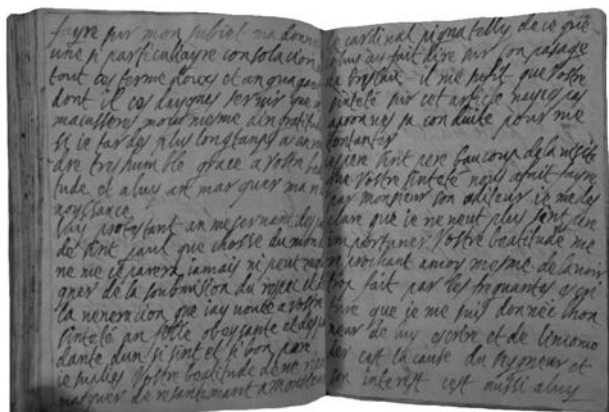 fayre sur mon subiet ma donné
une si particuliayre consolacion
tout ces terme doux et an gnagant
dont il ces daygnes servir que
macusseres mous mesme dingratitude
si ie tardes plus longtanps a
dre tres humble grace a vostre bea
tude et a luy an marquer ma re
noyssance
iay protestant an me servant des
de sint paul que chosse du monde
ne me separera iamais ni peut
gner de la soubmision du respec et de
la veneracion que iay vouee a vostre
sinteté an fille obeysante et
dante dun si sint et si bon pare
ie suplies Vostre beatitude de ne
marquer de resantimant a monsieur
le cardinal pignatelly de ce que
luy ay fait dire sur son pasage
de il me sufit que Vostre
sinteté sur cet article ayes
aprouves sa conduite pour me
contanter
sint pere baucoup de la visite
que Vostre sinteté nous a fait fayre
par monsieur son oditeur ie me des
clare que ie ne veut plus sint pere
importuner Vostre beatitude me
reprochant a moy mesme de lavoir
trop fait par les frequantes escri
ture que ie me suis donnée lhon
neur de luy escrire et de liniomo
der cest la cause du seygneur et
son interest cest aussi a luy